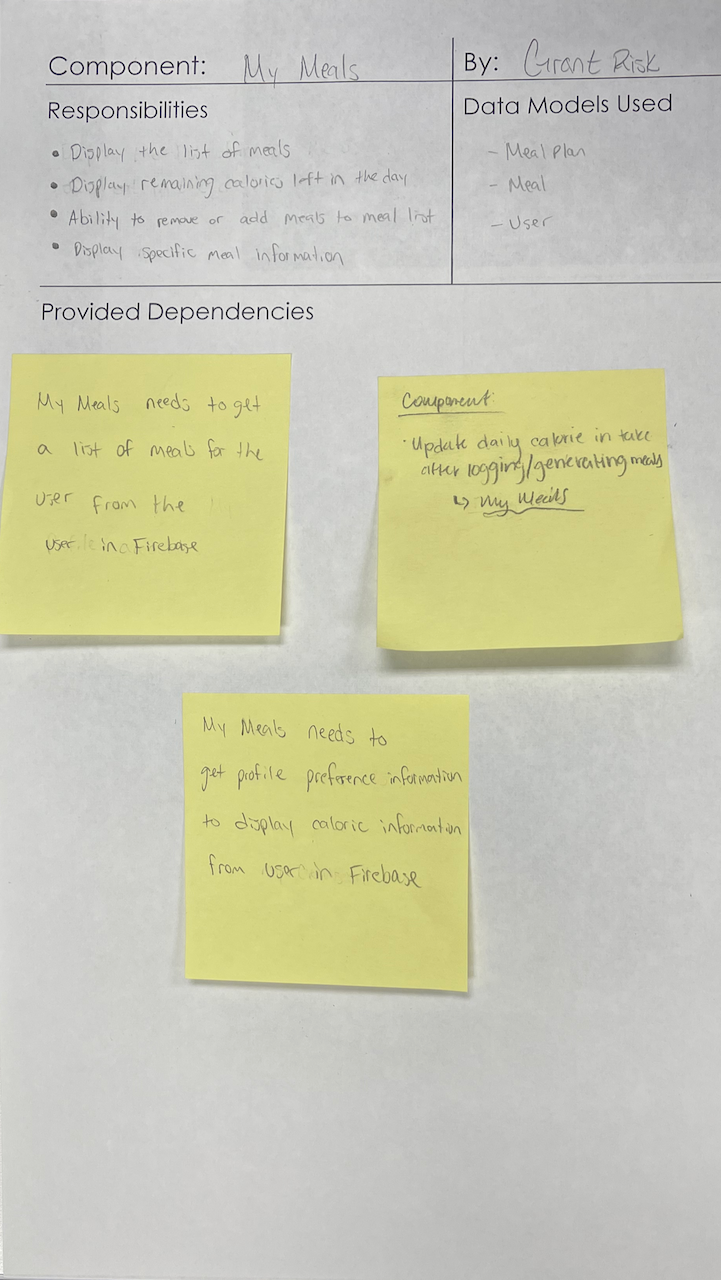 Component: My Meals
By: Grant Risk
Responsibilities
• Display the list of meals
• Display remaining calories left in the day
• Ability to remove or add meals to meal list
• Display specific meal information
Data Models Used
- Meal Plan
- Meal
- User
Provided Dependencies
My Meals needs to get
a list of meals for the
user from the
user in Firebase
Component:
· Update daily calorie in take
after logging/generating meals
↳ My Meals
My Meals needs to
get profile preference information
to display caloric information
from user in Firebase